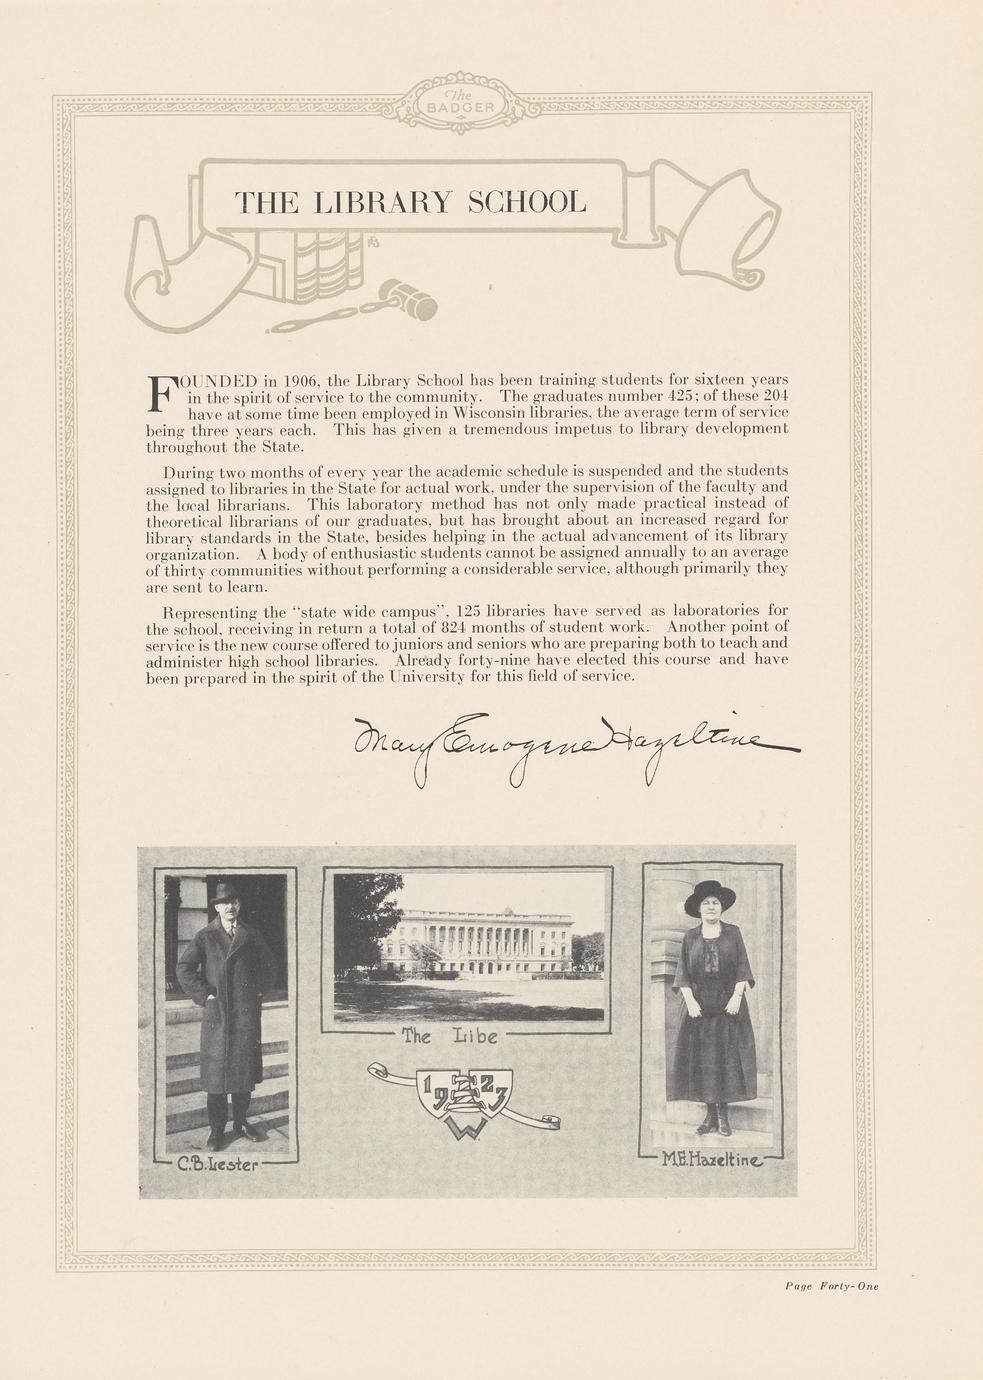 The
BADGER
THE LIBRARY SCHOOL
FOUNDED in 1906, the Library School has been training students for sixteen years
in the spirit of service to the community. The graduates number 425; of these 204
have at some time been employed in Wisconsin libraries, the average term of service
being three years each. This has given a tremendous impetus to library development
throughout the State.
During two months of every year the academic schedule is suspended and the students
assigned to libraries in the State for actual work, under the supervision of the faculty and
the local librarians. This laboratory method has not only made practical instead of
theoretical librarians of our graduates, but has brought about an increased regard for
library standards in the State, besides helping in the actual advancement of its library
organization. A body of enthusiastic students cannot be assigned annually to an average
of thirty communities without performing a considerable service, although primarily they
are sent to learn.
Representing the “state wide campus”, 125 libraries have served as laboratories for
the school, receiving in return a total of 824 months of student work. Another point of
service is the new course offered to juniors and seniors who are preparing both to teach and
administer high school libraries. Already forty-nine have elected this course and have
been prepared in the spirit of the University for this field of service.
Mary Emogene Hazeltine
The Libe
1923
W
C.B.Lester
M.E.Hazeltine
Page Forty-One